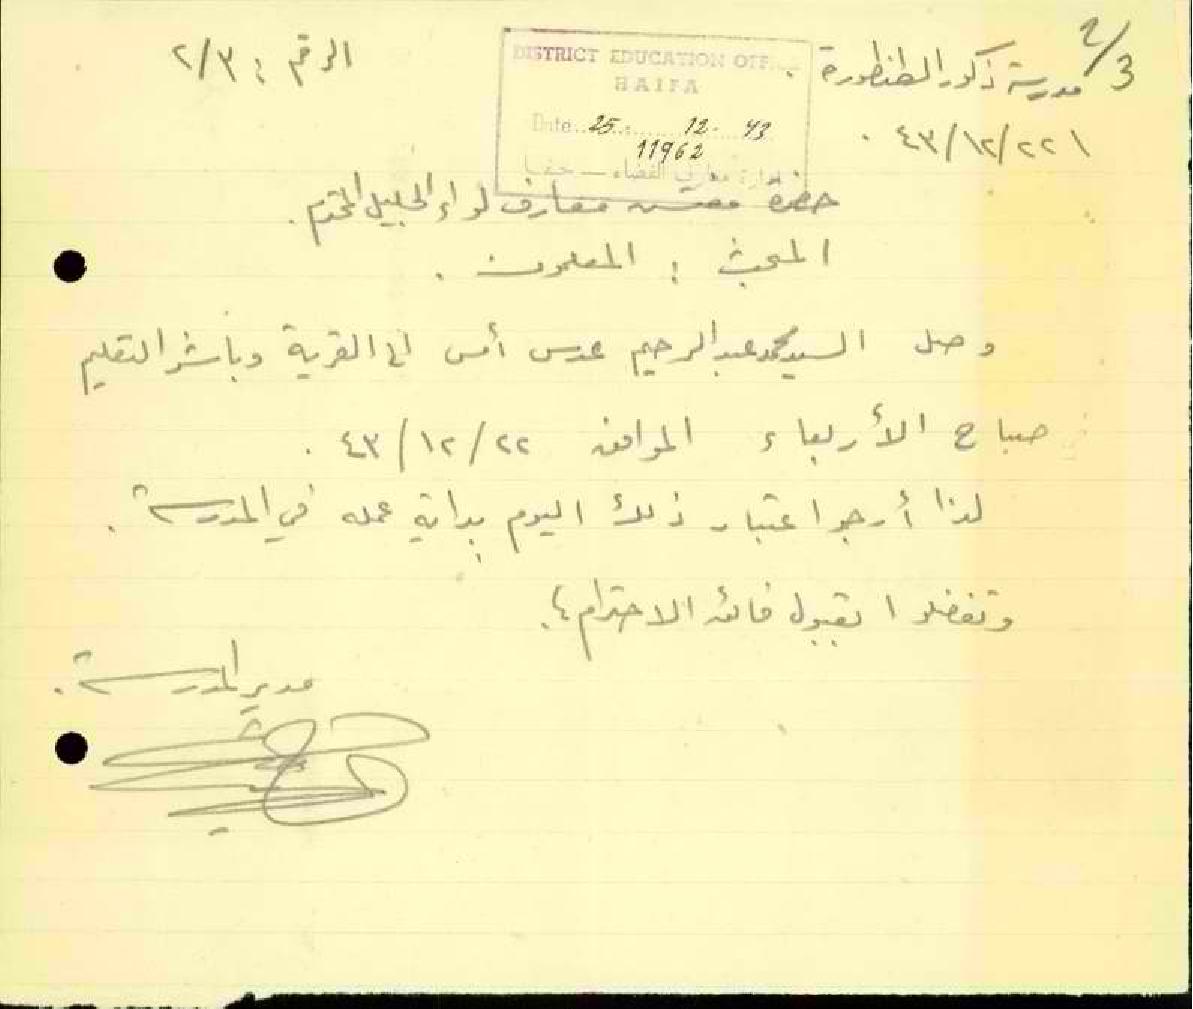 2/3
مدرسة ذكور الطنطورة
الرقم : ٢/٣
٤٣/١٢/٢٢
DISTRICT EDUCATION OFF
HAIFA
Date 25. 12. 43
11962
ادارة معارف القضاء — حيفا
حضرة مفتش معارف لواء الجليل المحترم .
المبحث : المعلمون .
وصل السيد محمد عبد الرحيم عدس أمس الى القرية وباشر التعليم
صباح الأربعاء الموافق ٤٣/١٢/٢٢ .
لذا أرجو اعتبار ذلك اليوم بداية عمله في المدرسة .
وتفضلوا بقبول فائق الاحترام ؛
مدير المدرسة .